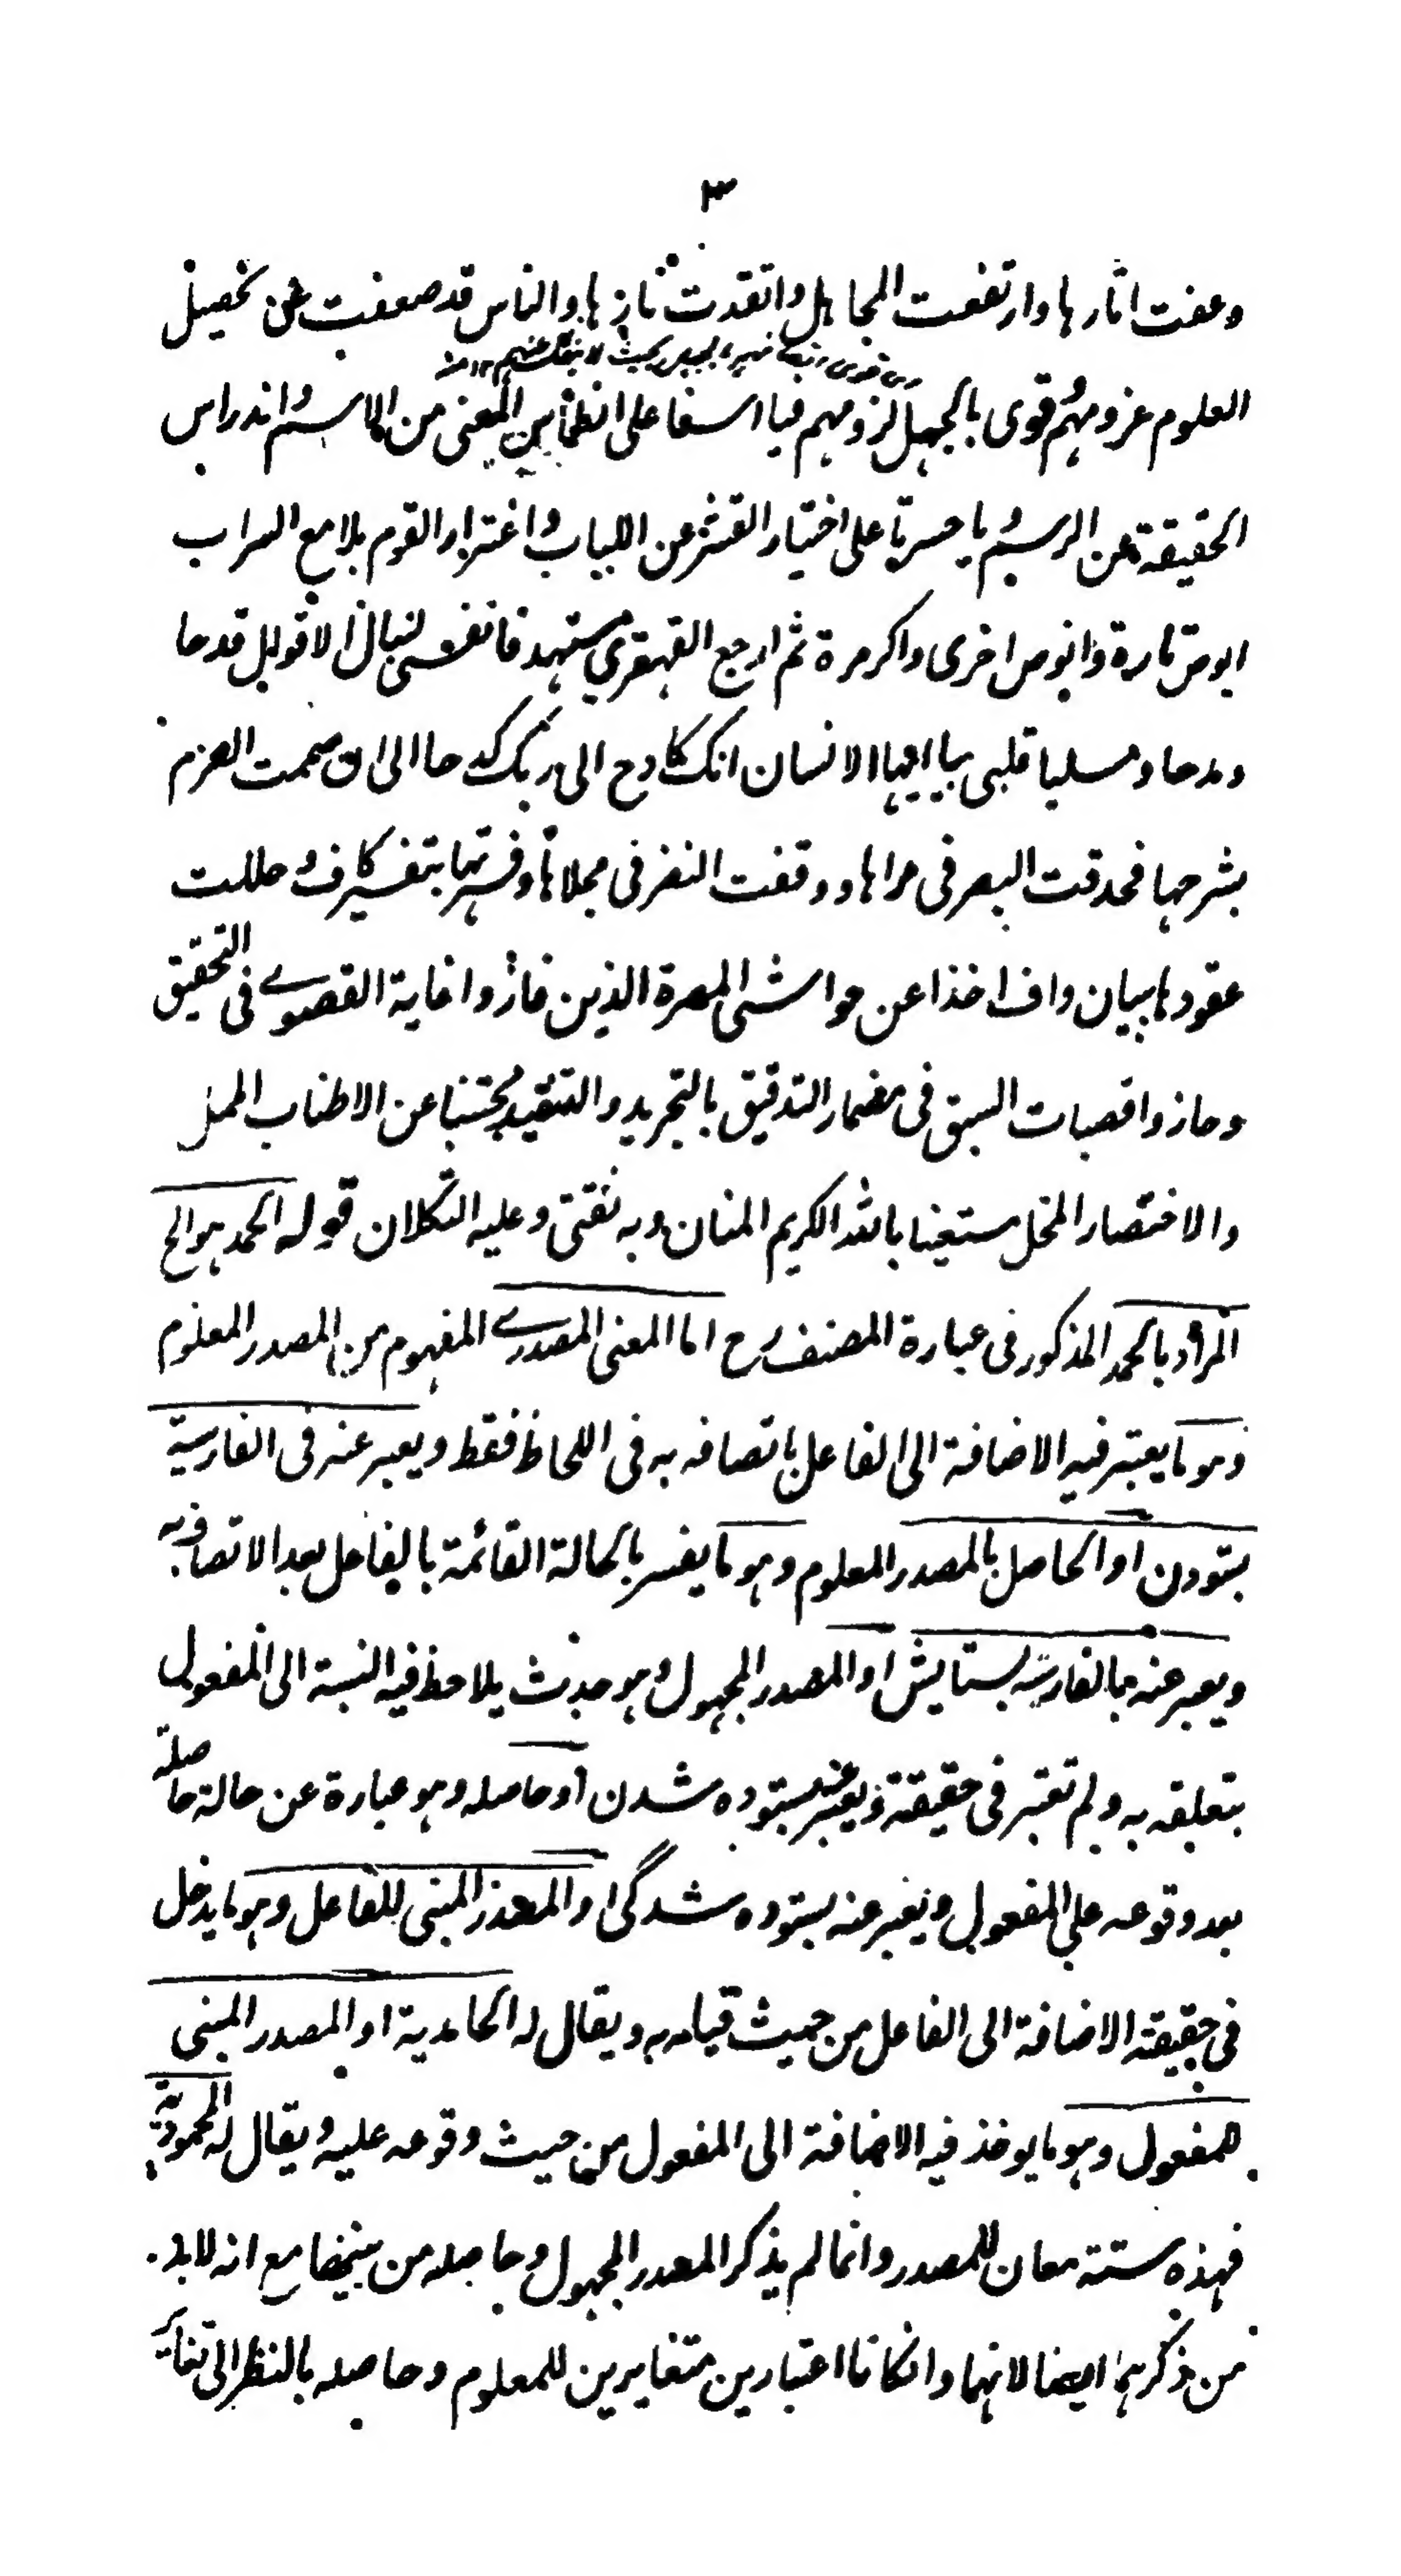 ٣
وعفت اثارها وارتفعت المجاهل واتقدت نازها والناس قد ضعفت عن تحصيل
العلوم عزومهم وقوى بالجهل لزومهم فيا اسفا على انطماس المعنى من الاسم واندراس
الحقيقة عن الرسم ويا حسرتا على اختيار القشر عن اللباب واغترار القوم بلامع السراب
ابوص تارة وانوص اخرى واكر مرة ثم ارجع القهقرى مستهدفا نفسى لنبال الاقوال قدحا
ومدحا ومسليا قلبى بيا ايها الانسان انك كادح الى ربك كدحا الى ان صممت العزم
بشرحها فحدقت البصر فى مراها ووقفت النظر فى مجلاتها وفسرتها بتفسير كاف وحللت
عقودها ببيان واف اخذا عن حواشى المهرة الذين فازوا غاية القصوے فى التحقيق
وحازوا قصبات السبق فى مضمار التدقيق بالتجريد والتنقيد مجتنبا عن الاطناب الممل
والاختصار المخل مستعينا بالله الكريم المنان وبه ثقتى وعليه التكلان قوله الحمد هو الخ
المراد بالحمد المذكور فى عبارة المصنف رح اما المعنى المصدرے المفهوم من المصدر المعلوم
وهو ما يعتبر فيه الاضافة الى الفاعل باتصافه به فى اللحاظ فقط ويعبر عنه فى الفارسية
بستودن او الحاصل بالمصدر المعلوم وهو ما يفسر بالحالة القائمة بالفاعل بعد الاتصاف به
ويعبر عنه بالفارسية بستايش او المصدر المجهول وهو حدث يلاحظ فيه النسبة الى المفعول
بتعلقه به ولم تعتبر فى حقيقة ويعبر عنه بستوده شدن او حاصله وهو عبارة عن حالة حاصلة
بعد وقوعه على المفعول ويعبر عنه بستوده شدگى او المصدر المبنى للفاعل وهو ما يدخل
فى حقيقة الاضافة الى الفاعل من حيث قيامه به ويقال له الحامدية او المصدر المبنى
للمفعول وهو ما يوخذ فيه الاضافة الى المفعول من حيث وقوعه عليه ويقال له المحمودية
فهذه ستة معان للمصدر وانما لم يذكر المصدر المجهول وحاصله من بينها مع انه لابد
من ذكرهما ايضا لانهما وان كانا اعتبارين متغايرين للمعلوم وحاصله بالنظر الى تغاير